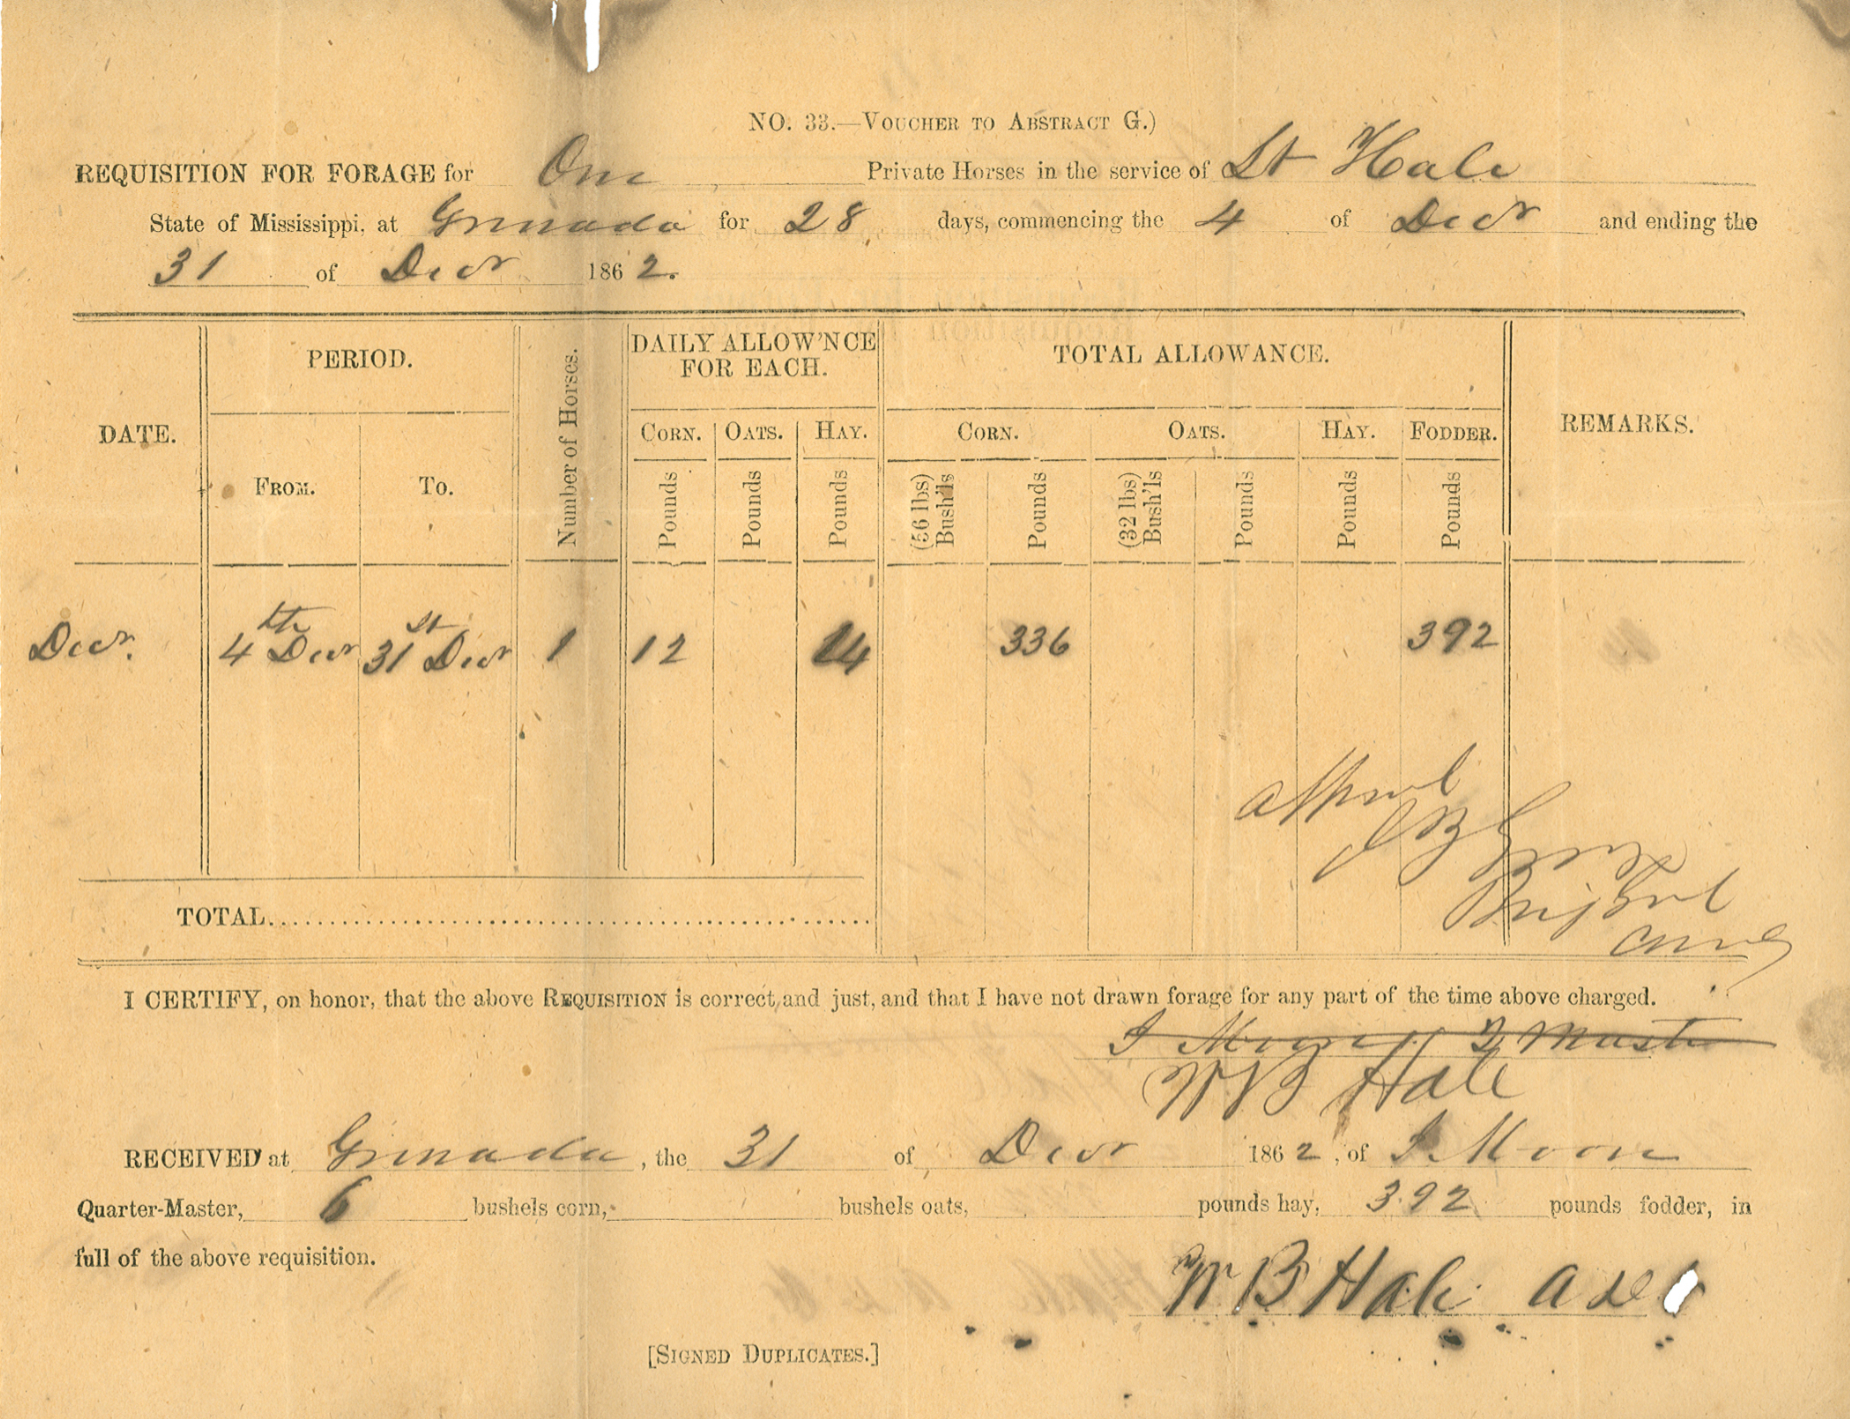 NO. 33.—VOUCHER TO ABSTRACT G.)
REQUISITION FOR FORAGE for One Private Horses in the service of Lt Hale
State of Mississippi, at Grenada for 28 days, commencing the 4 of Decr and ending the
31 of Decr 1862.
DATE. PERIOD. Number of Horses. DAILY ALLOW'NCE FOR EACH. TOTAL ALLOWANCE. REMARKS.
FROM. TO. CORN. OATS. HAY. CORN. OATS. HAY. FODDER.
Pounds Pounds Pounds (56 lbs) Bush'ls Pounds (32 lbs) Bush'ls Pounds Pounds Pounds
Decr. 4th Decr 31st Decr 1 12 14 336 392
Approved
Brig Genl
TOTAL
I CERTIFY, on honor, that the above REQUISITION is correct, and just, and that I have not drawn forage for any part of the time above charged.
I Moore Q Master
W B Hale
RECEIVED at Grenada, the 31 of Decr 1862, of I. Moore
Quarter-Master, 6 bushels corn, bushels oats, pounds hay, 392 pounds fodder, in
full of the above requisition.
W B Hale A D C
[SIGNED DUPLICATES.]